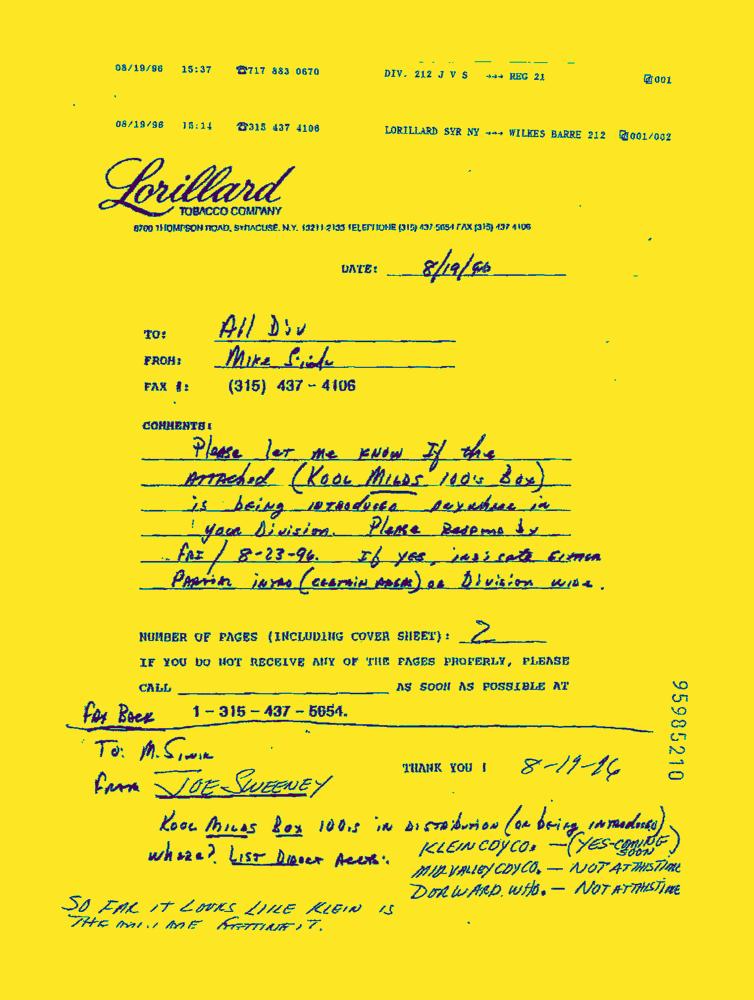 08/19/96 15:37 ☎717 883 0670 DIV. 212 J V S →→→ REG 21 001
08/19/96 15:14 ☎315 437 4106 LORILLARD SYR NY →→→ WILKES BARRE 212 001/002
Lorillard
TOBACCO COMPANY
6700 THOMPSON ROAD, SYRACUSE, N.Y. 13211-2135 TELEPHONE (315) 437-5654 FAX (315) 437-4106
DATE: 8/19/96
TO: All Div
FROM: Mike
FAX #: (315) 437-4106
COMMENTS:
Please let me know If the
Attached (Kool Milds 100's Box)
is being introduced anywhere in
your Division. Please Respond by
FRI / 8-23-96. If yes, indicate either
Partial intro (certain areas) or Division wide.
NUMBER OF PAGES (INCLUDING COVER SHEET): 2
IF YOU DO NOT RECEIVE ANY OF THE PAGES PROPERLY, PLEASE
CALL AS SOON AS POSSIBLE AT
1-315-437-5654.
Fax Back
To: M.
THANK YOU ! 8-19-96
From JOE SWEENEY
Kool Milds Box 100's in distribution (or being introduced)
where? List Direct Accts:
KLEIN CDYCO. — (YES-COMING SOON)
MID VALLEY CDYCO. — NOT AT THIS TIME
DORWARD. WHO. — NOT AT THIS TIME
SO FAR IT LOOKS LIKE KLEIN IS
THE ONE GETTING IT.
95985210